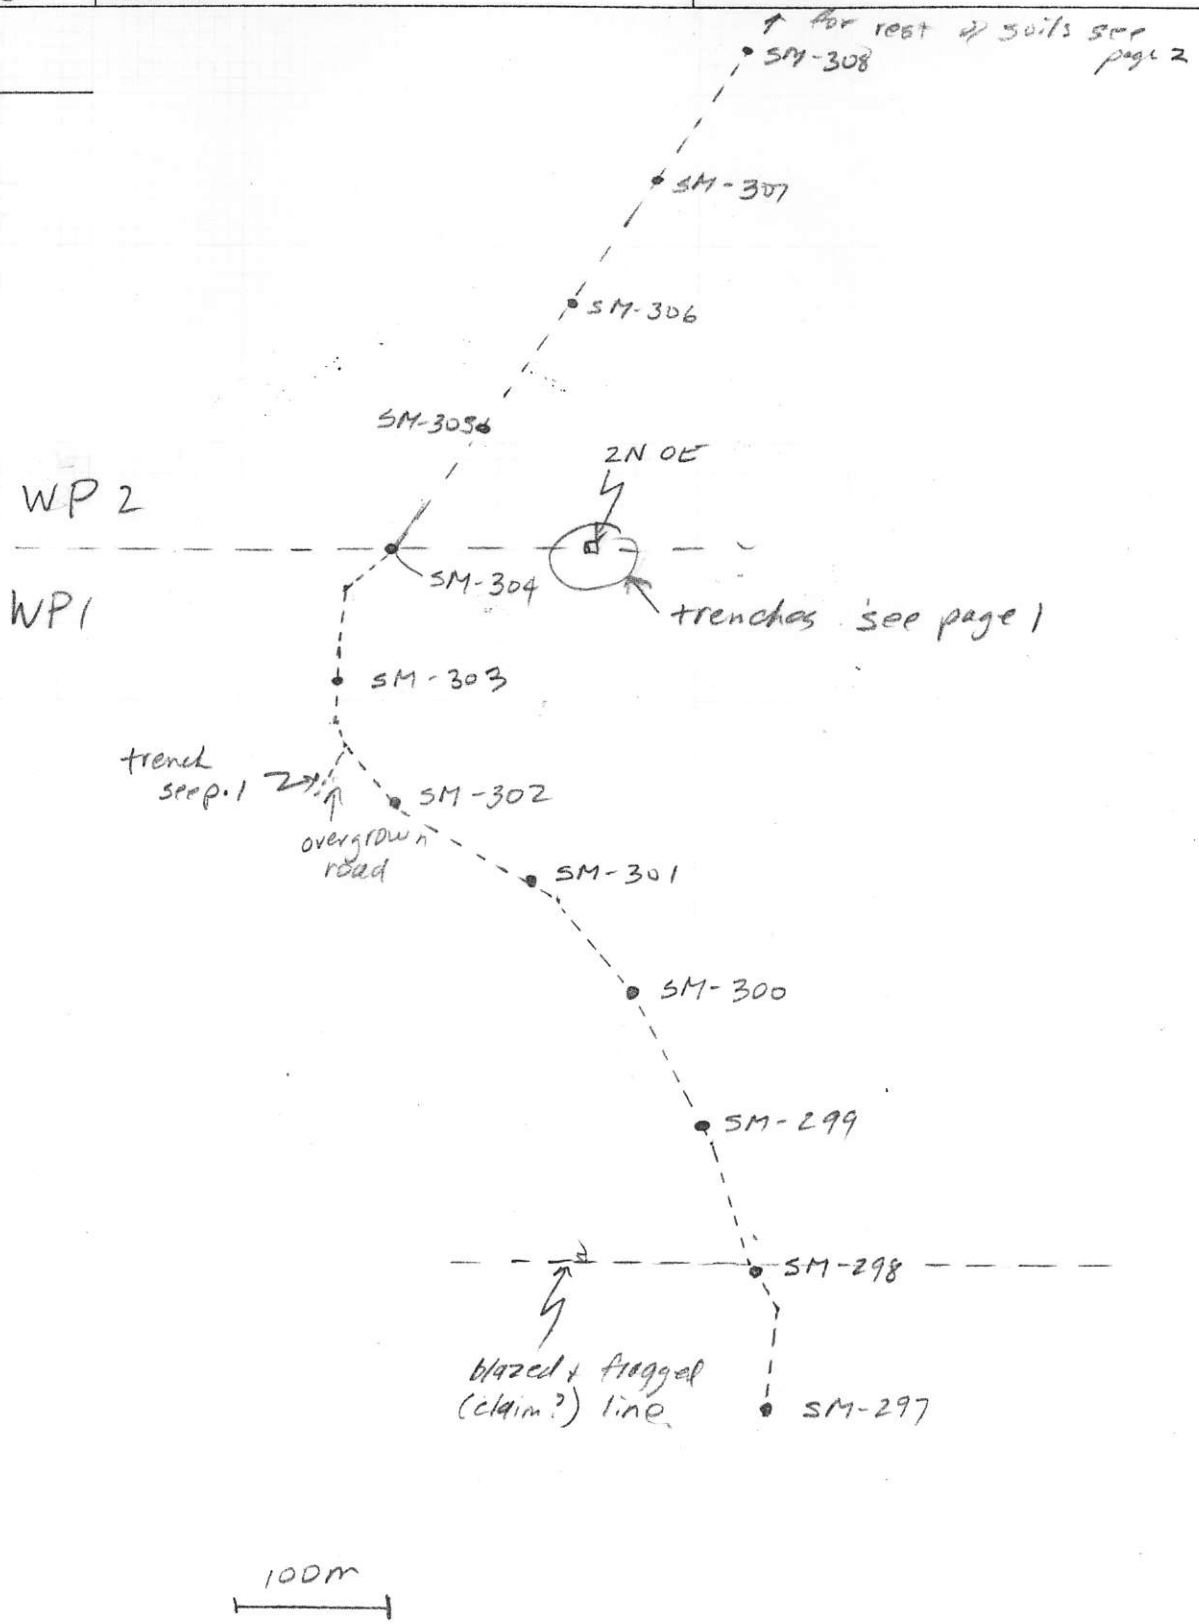 ↑ for rest of soils see
page 2
SM-308
SM-307
SM-306
SM-305
2N OE
WP 2
SM-304
WP1
trenches see page 1
SM-303
trench
see p.1
SM-302
overgrown
road
SM-301
SM-300
SM-299
SM-298
blazed + flagged
(claim?) line
SM-297
100m